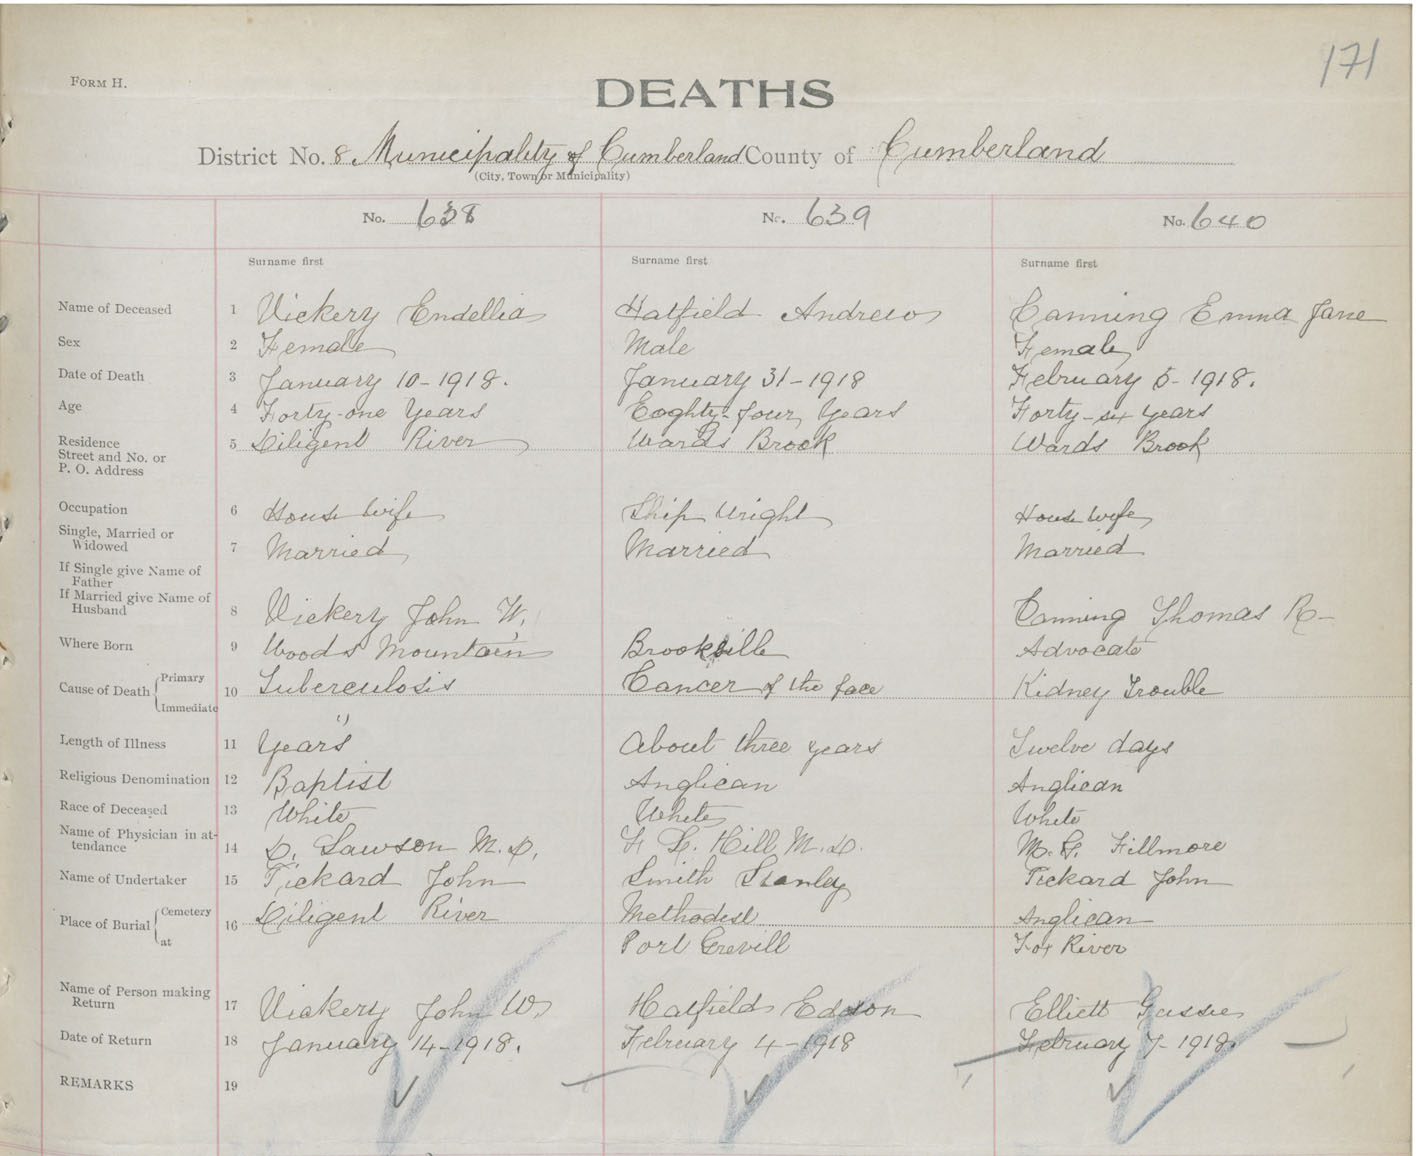 171
FORM H.
DEATHS
District No. 8 Municipality of Cumberland County of Cumberland
(City, Town or Municipality)
No. 638 No. 639 No. 640
Surname first Surname first Surname first
Name of Deceased 1 Vickery Endellia Hatfield Andrew Canning Emma Jane
Sex 2 Female Male Female
Date of Death 3 January 10-1918. January 31-1918 February 5-1918.
Age 4 Forty-one Years Eoghty-four Years Forty-six years
Residence 5 Diligent River Wards Brook Wards Brook
Street and No. or
P. O. Address
Occupation 6 House wife Ship wright House wife
Single, Married or
Widowed 7 Married Married Married
If Single give Name of
Father
If Married give Name of
Husband 8 Vickery John W. Canning Thomas R-
Where Born 9 Woods Mountain Brookville Advocate
Cause of Death Primary 10 Tuberculosis Cancer of the face Kidney Trouble
Immediate "
Length of Illness 11 Years About three years Twelve days
Religious Denomination 12 Baptist Anglican Anglican
Race of Deceased 13 White White White
Name of Physician in at-
tendance 14 D. Lawson M.D. F L. Hill M.D. M. G. Fillmore
Name of Undertaker 15 Pickard John Smith Stanley Pickard John
Place of Burial Cemetery 16 Diligent River Methodist Anglican
at Port Grevill Fox River
Name of Person making
Return 17 Vickery John W. Hatfield Edson Elliett Gussie
Date of Return 18 January 14-1918. February 4-1918 February 7-1918.
REMARKS 19